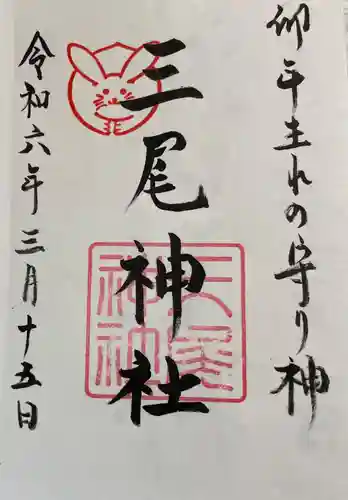 卯年生れの守り神
三尾神社
三尾神社
令和六年三月十五日